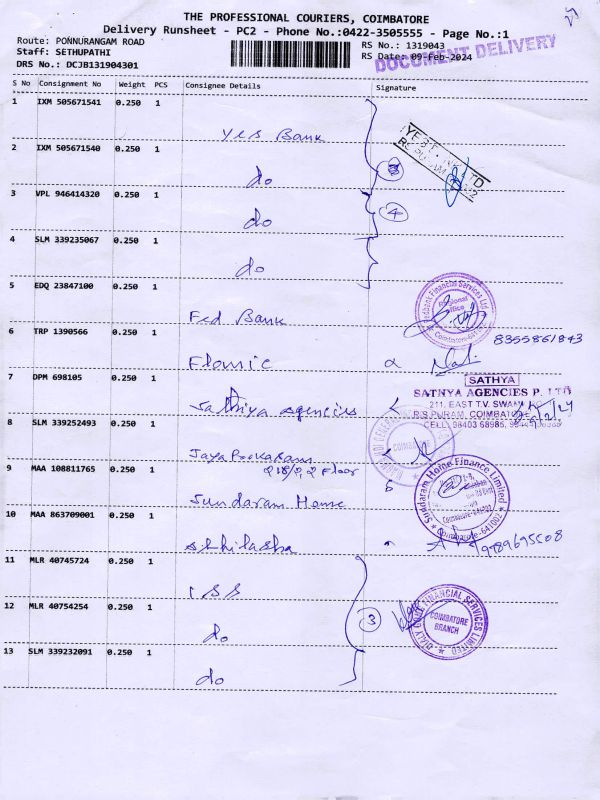 THE PROFESSIONAL COURIERS, COIMBATORE
Delivery Runsheet - PC2 - Phone No.:0422-3505555 - Page No.:1
Route: PONNURANGAM ROAD
RS No.: 1319043
Staff: SETHUPATHI
RS Date: 09-Feb-2024
DOCUMENT DELIVERY
DRS No.: DCJB131904301
S No Consignment No Weight PCS Consignee Details Signature
1 IXM 505671541 0.250 1
Yes Bank
2 IXM 505671540 0.250 1
do
3 VPL 946414320 0.250 1
do
4
4 SLM 339235067 0.250 1
do
5 EDQ 23847100 0.250 1
Fed Bank
Regional Office
Coimbatore
8355861843
6 TRP 1390566 0.250 1
Flomic
7 DPM 698105 0.250 1
Sathiya Agencies
SATHYA
SATHYA AGENCIES P. LTD
211, EAST T.V. SWAMY
R.S. PURAM, COIMBATORE
CELL: 98403 68985,
8 SLM 339252493 0.250 1
COIMBATORE
9 MAA 108811765 0.250 1
Floor
Sundaram Home
Sundaram Home Finance Limited
Coimbatore-641002
10 MAA 863709001 0.250 1
11 MLR 40745724 0.250 1
ISS
12 MLR 40754254 0.250 1
do
3
FINANCIAL SERVICES LIMITED
COIMBATORE
BRANCH
13 SLM 339232091 0.250 1
do